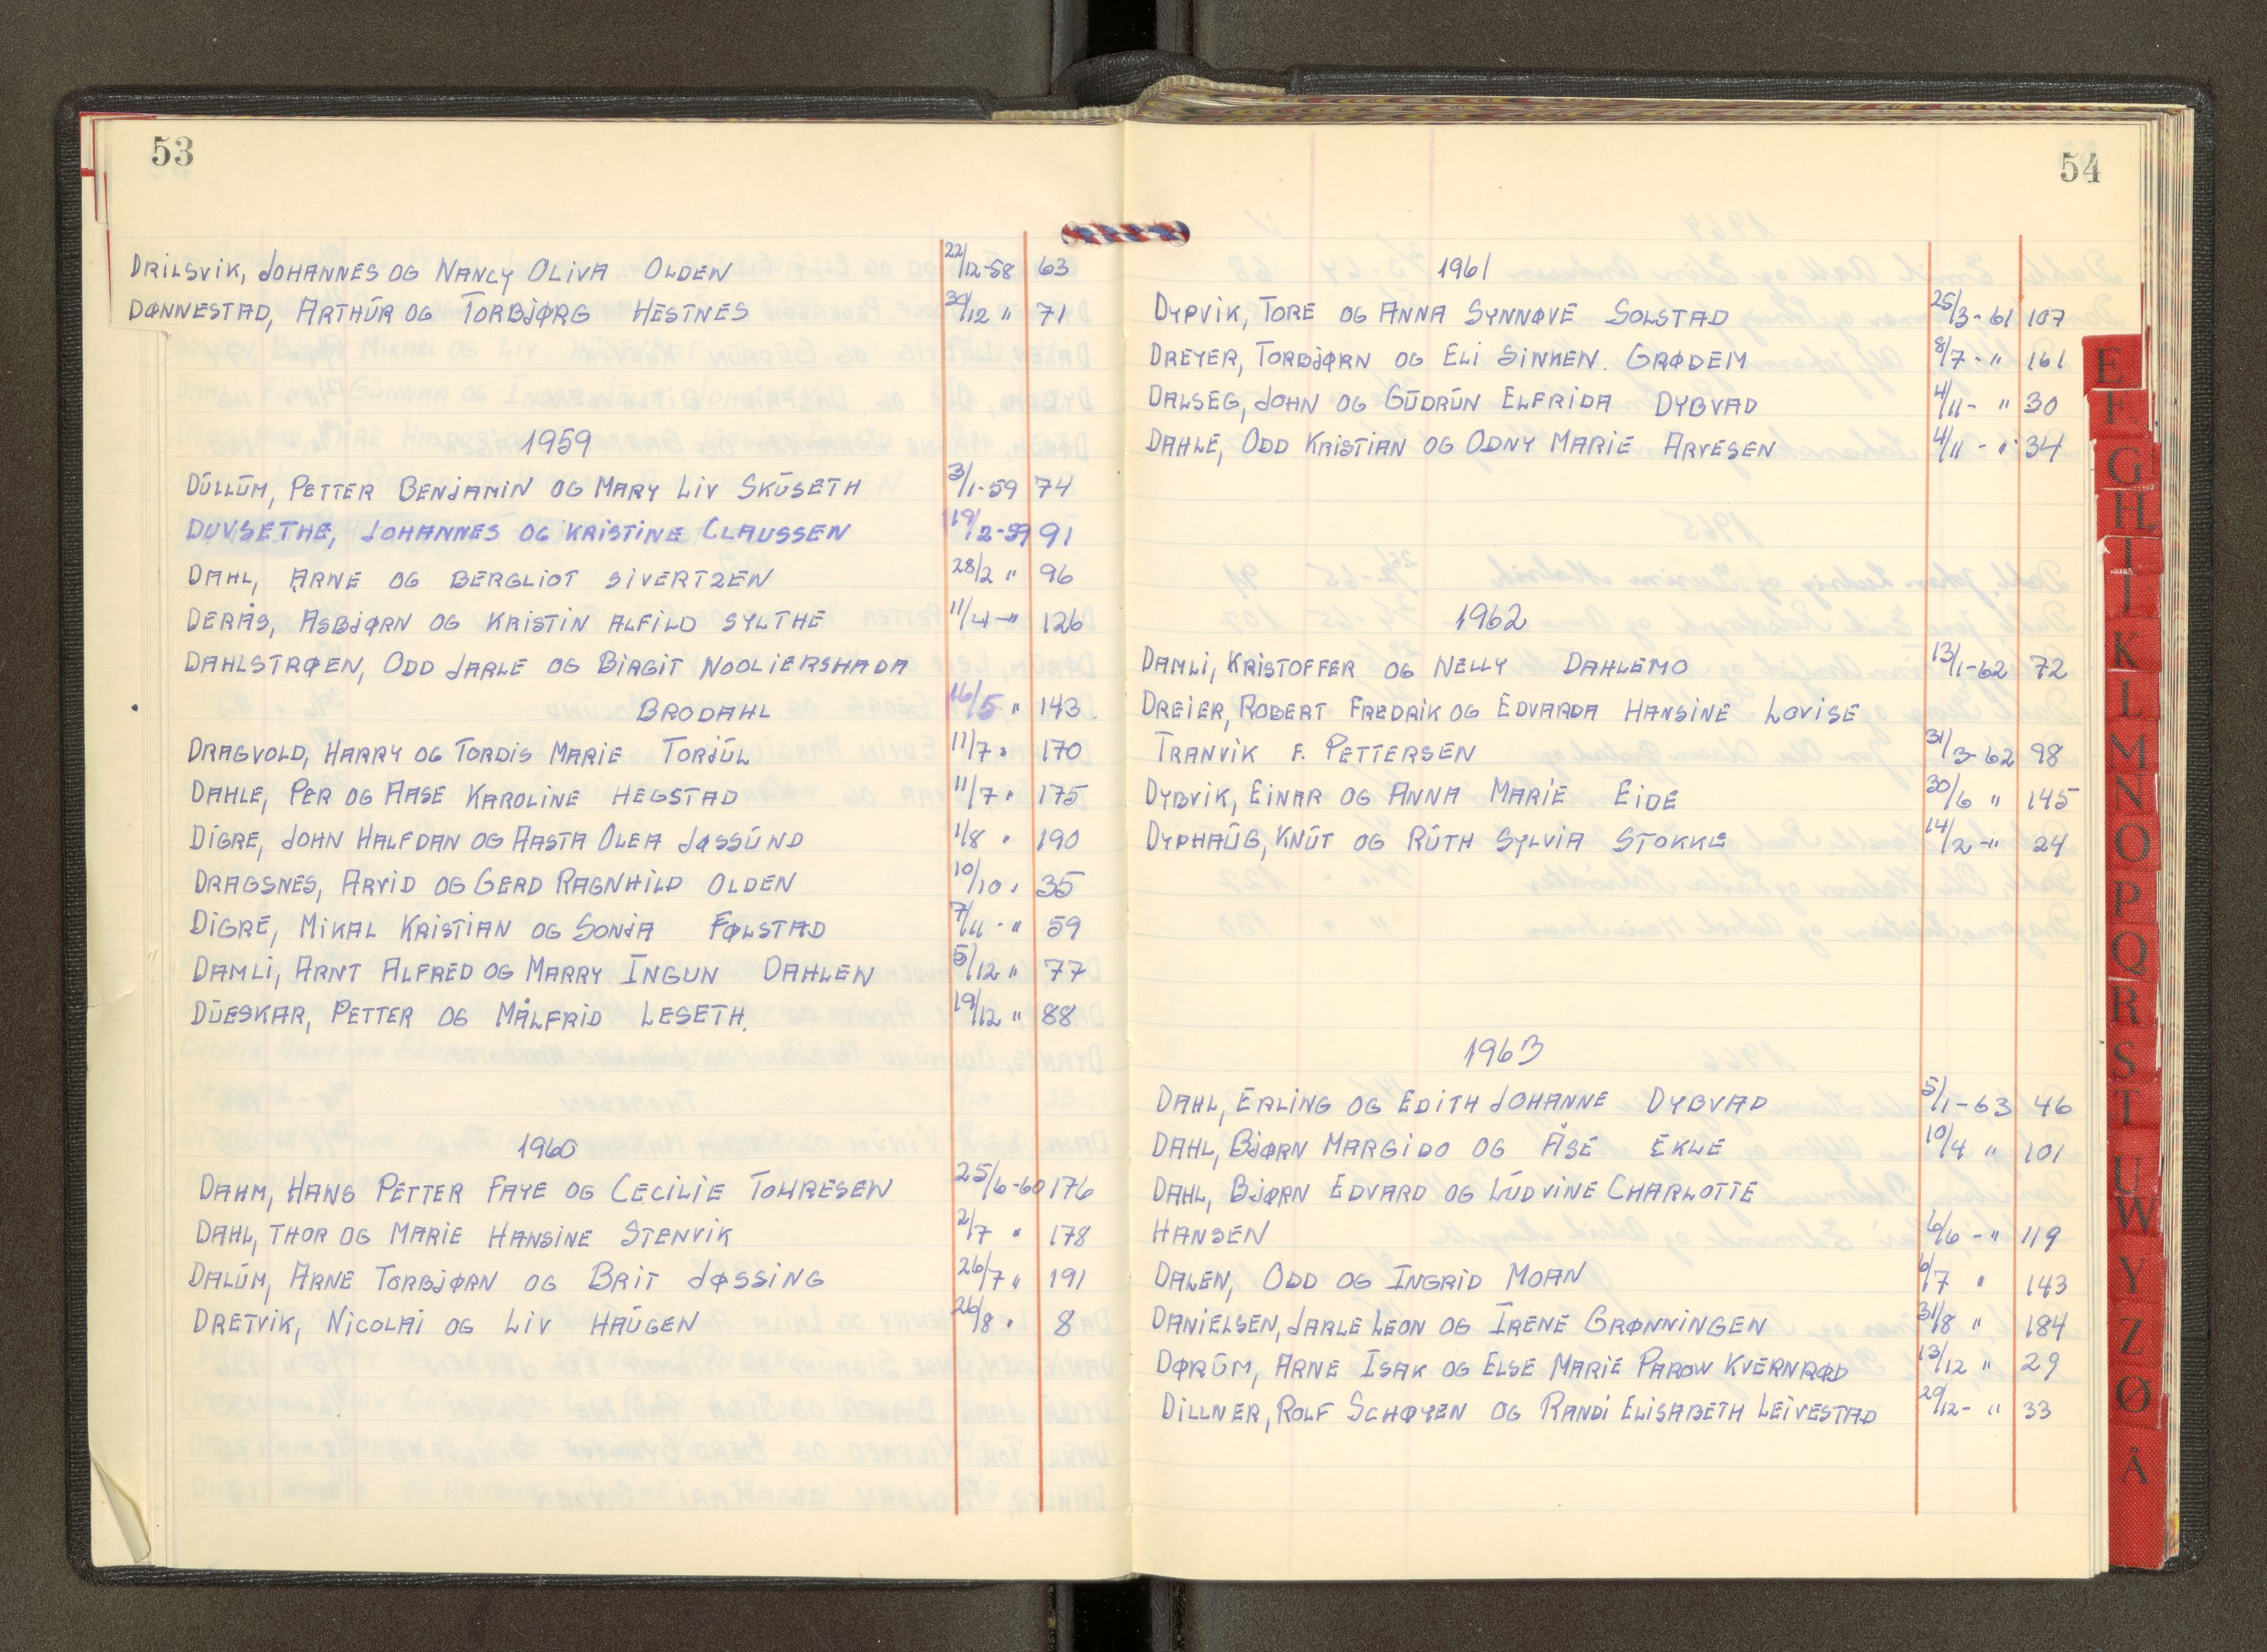 53
DRILSVIK, JOHANNES OG NANCY OLIVA OLDEN 22/12-58 63
DØNNESTAD, ARTHŪR OG TORBJØRG HESTNES 30/12 " 71
1959
DŪLLŪM, PETTER BENJAMIN OG MARY LIV SKŪSETH 3/1-59 74
DUVSETHE, JOHANNES OG KRISTINE CLAUSSEN 19/2-59 91
DAHL, ARNE OG BERGLIOT SIVERTZEN 28/2 " 96
DERÅS, ASBJØRN OG KRISTIN ALFILD SYLTHE 11/4-" 126
DAHLSTRØEN, ODD JARLE OG BIRGIT NOOLIERSHADA
BRODAHL 16/5 " 143
DRAGVOLD, HARRY OG TORDIS MARIE TORJŪL 11/7 " 170
DAHLE, PER OG AASE KAROLINE HEGSTAD 11/7 " 175
DIGRE, JOHN HALFDAN OG AASTA OLEA JØSSŪND 1/8 " 190
DRAGSNES, ARVID OG GERD RAGNHILD OLDEN 10/10 " 35
DIGRE, MIKAL KRISTIAN OG SONJA FØLSTAD 7/11-" 59
DAMLI, ARNT ALFRED OG MARRY INGUN DAHLEN 5/12 " 77
DŪESKAR, PETTER OG MÅLFRID LESETH. 19/12 " 88
1960
DAHM, HANS PETTER FAYE OG CECILIE TOHRESEN 25/6-60 176
DAHL, THOR OG MARIE HANSINE STENVIK 2/7 " 178
DALŪM, ARNE TORBJØRN OG BRIT JØSSING 26/7 " 191
DRETVIK, NICOLAI OG LIV HAŪGEN 26/8 " 8
54
1961
DYPVIK, TORE OG ANNA SYNNØVE SOLSTAD 25/3-61 107
DREYER, TORBJØRN OG ELI SINKEN. GRØDEM 8/7-" 161
DALSEG, JOHN OG GŪDRŪN ELFRIDA DYBVAD 4/11-" 30
DAHLE, ODD KRISTIAN OG ODNY MARIE ARVESEN 4/11-" 34
1962
DAMLI, KRISTOFFER OG NELLY DAHLEMO 13/1-62 72
DREIER, ROBERT FREDRIK OG EDVARDA HANSINE LOVISE
TRANVIK F. PETTERSEN 31/3-62 98
DYBVIK, EINAR OG ANNA MARIE EIDE 30/6 " 145
DYPHAŪG, KNŪT OG RŪTH SYLVIA STOKKE 14/2-" 24
1963
DAHL, ERLING OG EDITH JOHANNE DYBVAD 5/1-63 46
DAHL, BJØRN MARGIDO OG ÅSE EKLE 10/4 " 101
DAHL, BJØRN EDVARD OG LŪDVINE CHARLOTTE
HANSEN 6/6-" 119
DALEN, ODD OG INGRID MOAN 6/7 " 143
DANIELSEN, JARLE LEON OG IRENE GRØNNINGEN 31/8 " 184
DØRŪM, ARNE ISAK OG ELSE MARIE PAROW KVERNRØD 13/12 " 29
DILLNER, ROLF SCHØYEN OG RANDI ELISABETH LEIVESTAD 20/12-" 33
E
F
G
H
I
J
K
L
M
N
O
P
Q
R
S
T
U
W
Y
Z
Ø
Å